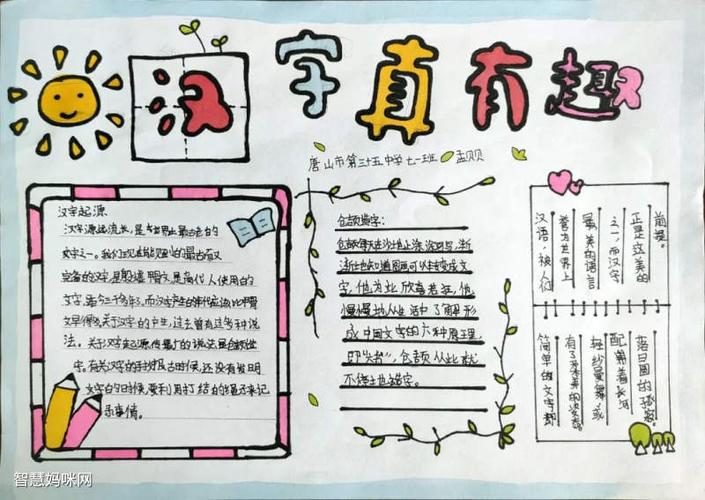 汉字真有趣
唐山市第三十五中学七一班 孟贝贝
汉字起源
汉字源远流长，是世界上最古老的
文字之一。我们现在能见到的最古而又
完备的汉字，是殷墟甲骨文，是商代人使用的
文字，距今三千多年，而汉字产生的年代应该比甲骨
文早得多。关于汉字的产生，过去曾有过多种说
法。关于汉字起源，传最广的说法是仓颉造
字。有关汉字的
上古时候，还没有发明
文字的时候，要利用打结的绳子来记
录事情。
仓颉造字：
仓颉每天在沙地上涂涂写写，渐
渐他知道图画可以转变成文
字，他为此欣喜若狂，他
慢慢地从生活中了解形
成中国文字的六种原理，
即"六书"，仓颉从此就
不停地造字。
前提。
正是立美的
之一，而汉字
最美的语言
誉为世界上
汉语，被人们
落日圆的孤寂。
配偶着长河
轻纱曼舞，或
有了柔美的姿态。
简单的文字却
智慧妈咪网